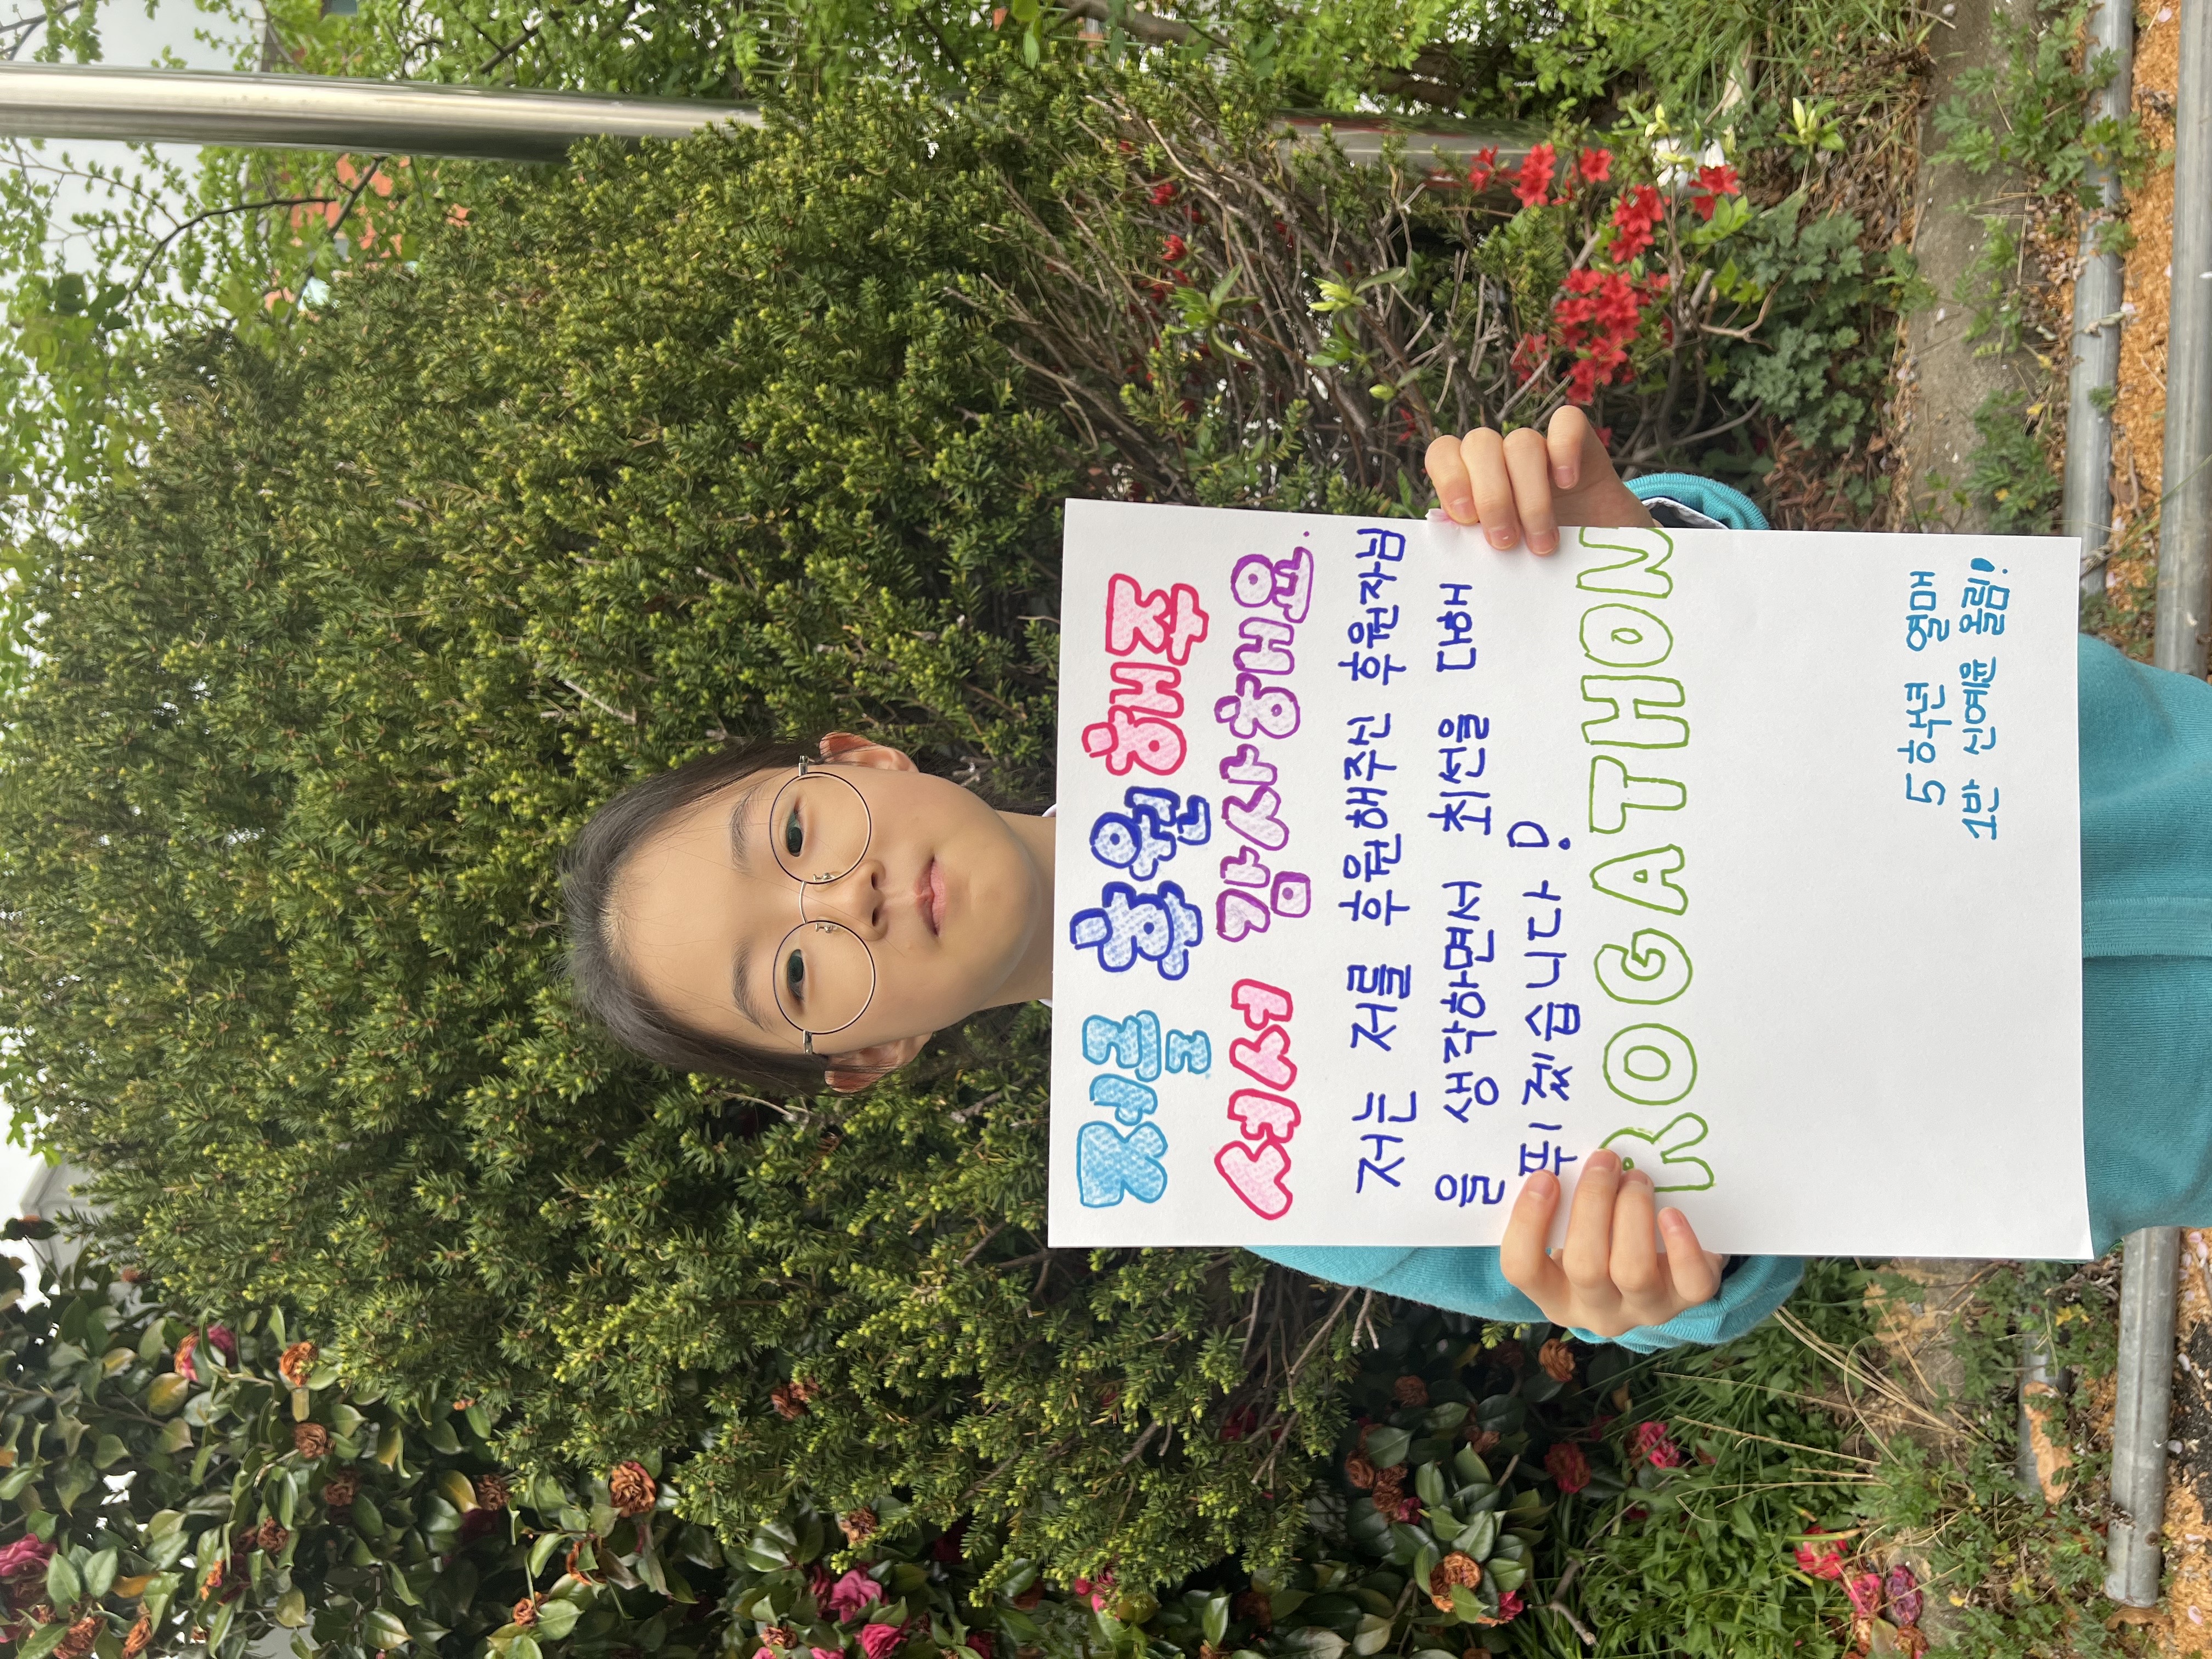 저를 후원 해주
셔서 감사해요.
저는 저를 후원해주신 후원자님
을 생각하면서 최선을 대해
뛰겠습니다!
ROGATHON
5학년 열매
1반 신예윤 올림!